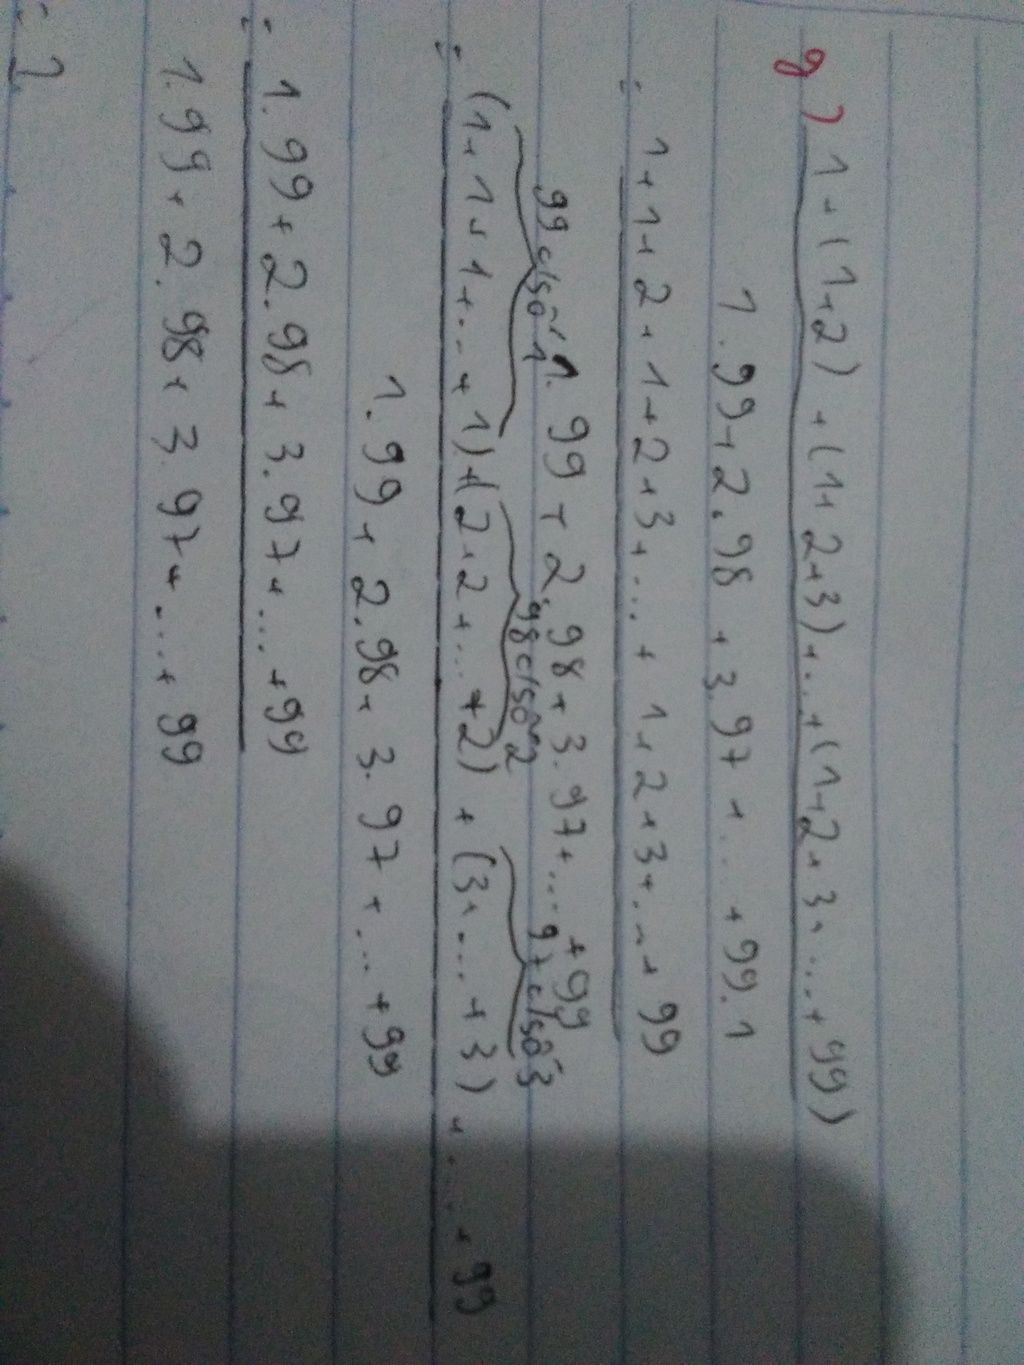 g) 1+(1+2)+(1+2+3)+...+(1+2+3+...+99)
1.99+2.98+3.97+...+99.1
= 1+1+2+1+2+3+...+1+2+3+...+99
1.99+2.98+3.97+...+99
99 c/số 1 98 c/số 2 97 c/số 3
= (1+1+1+...+1)+(2+2+...+2)+(3+...+3)+...+99
1.99+2.98+3.97+...+99
= 1.99+2.98+3.97+...+99
1.99+2.98+3.97+...+99
= 1